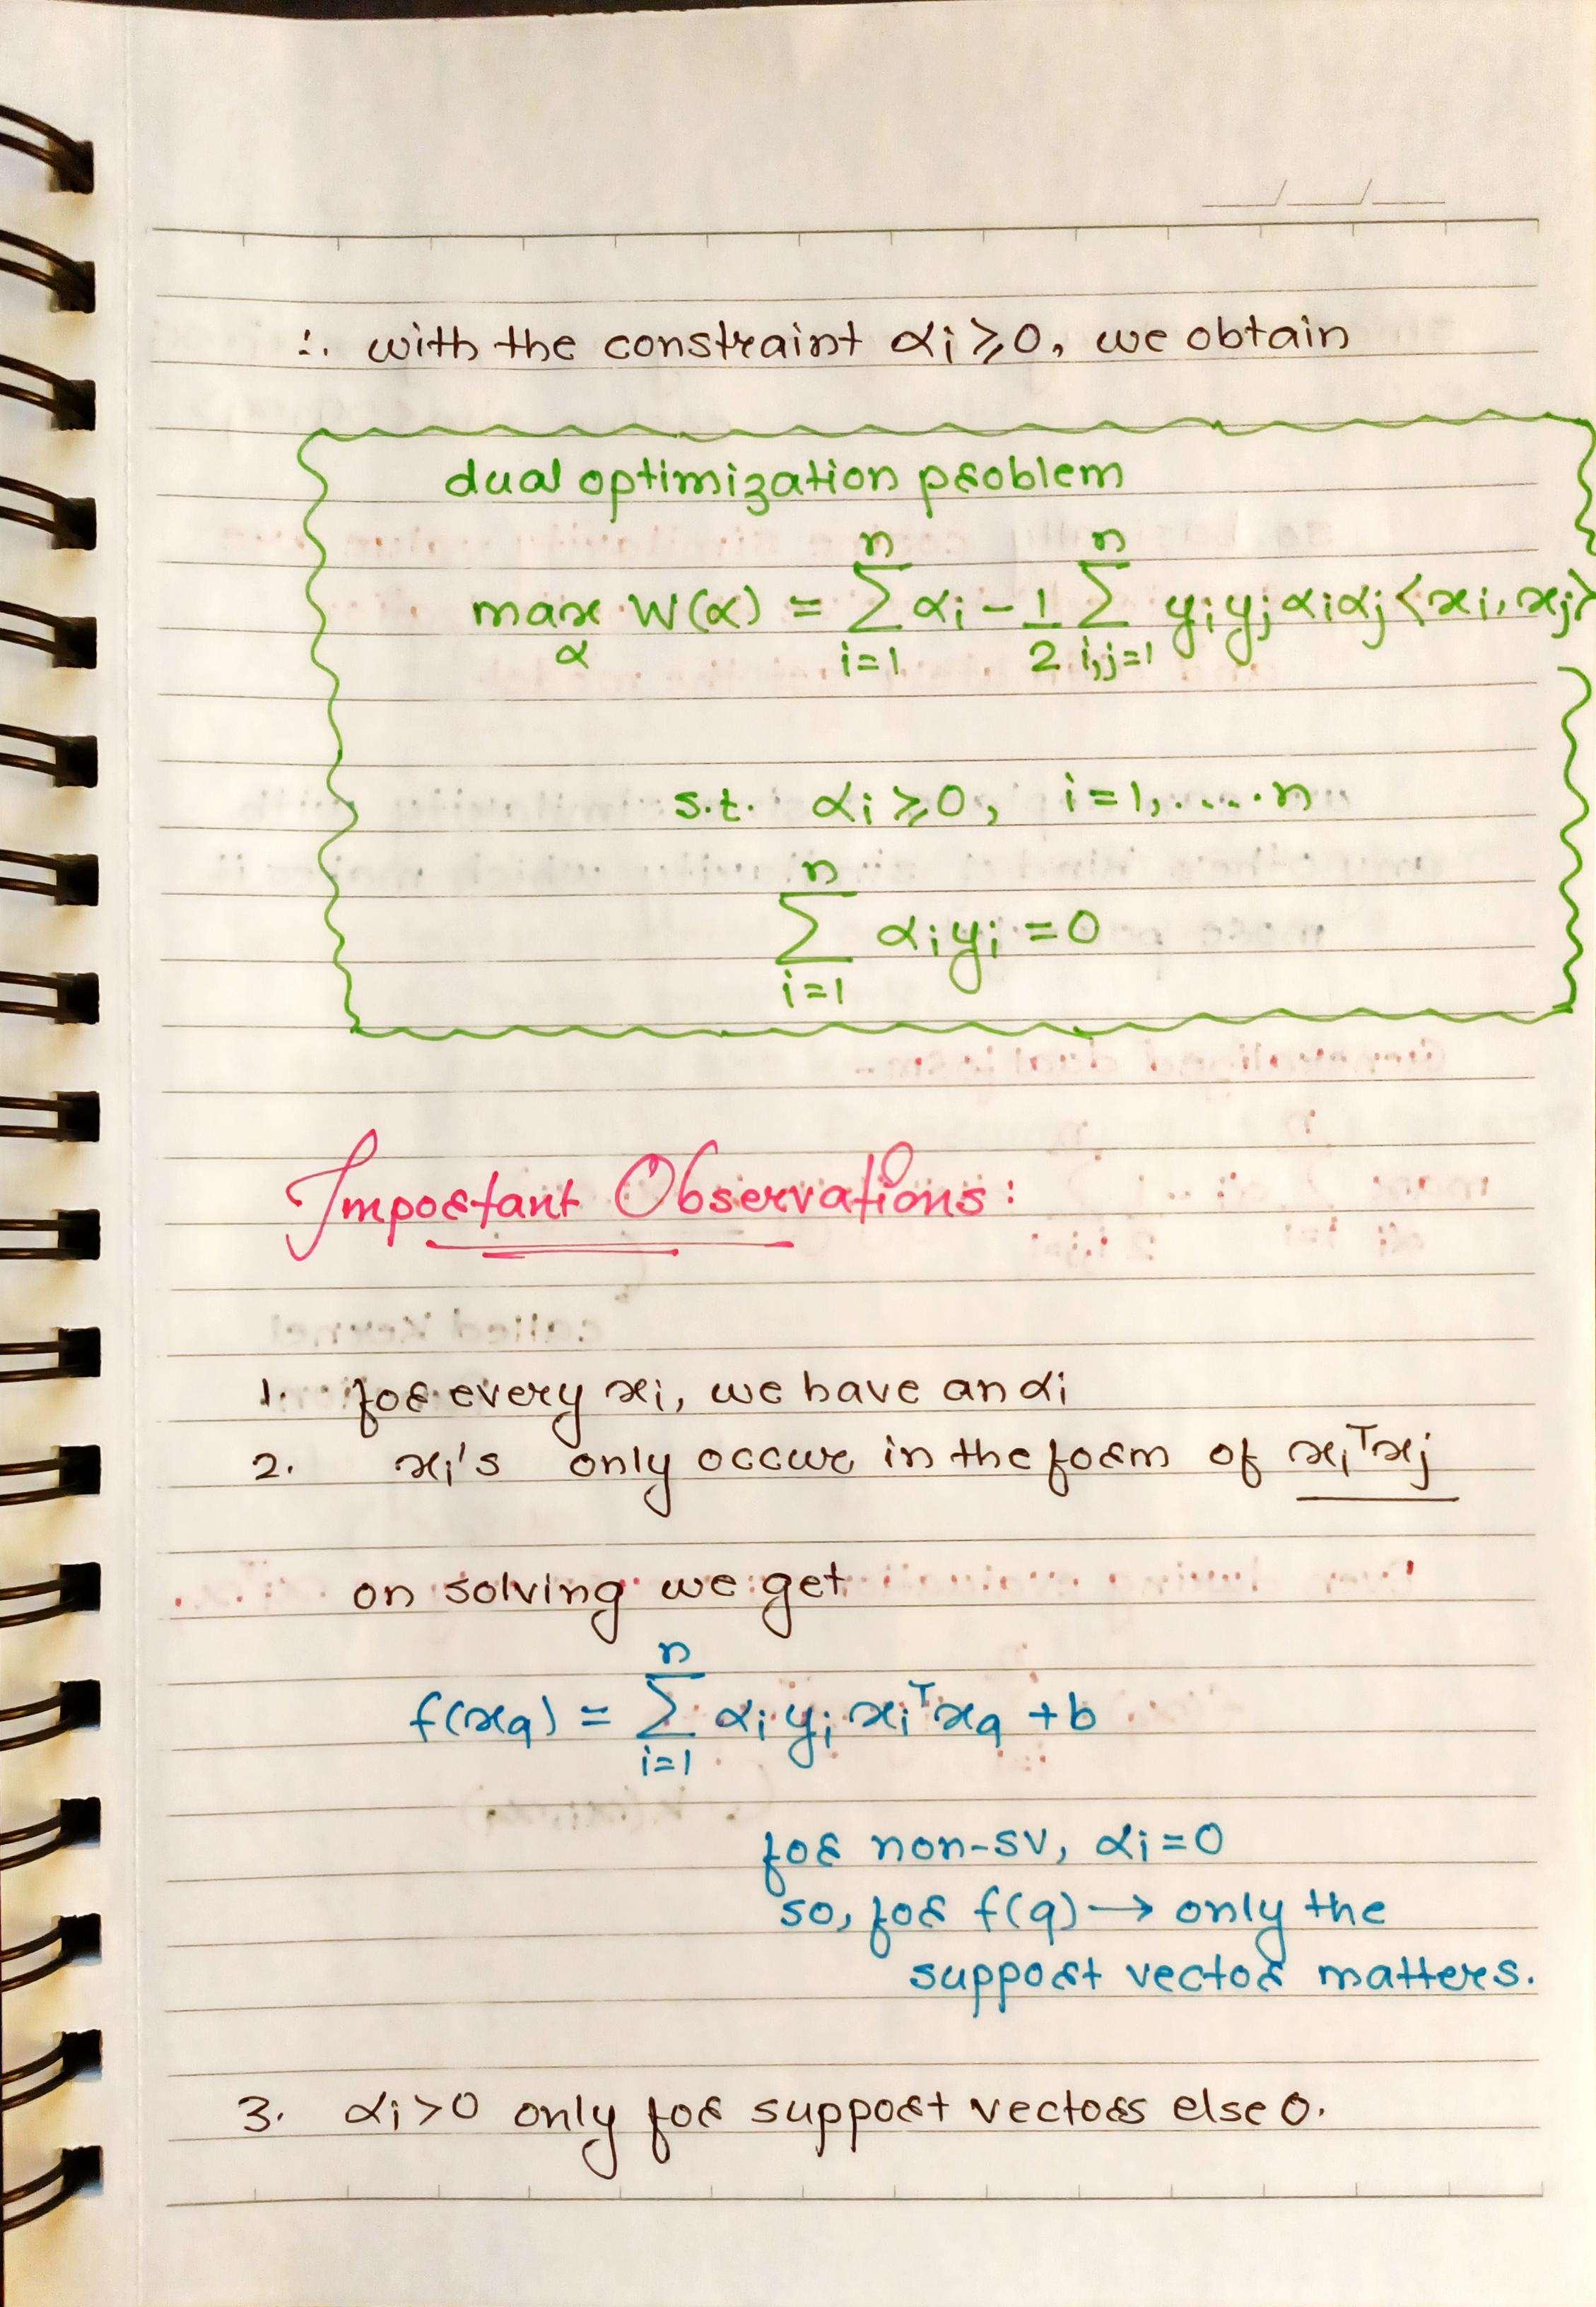 ∴ with the constraint αi ≥ 0, we obtain
dual optimization problem
max_α W(α) = Σ_{i=1}^{n} αi - 1/2 Σ_{i,j=1}^{n} yi yj αi αj <xi, xj>
s.t. αi ≥ 0, i = 1, ..... n
Σ_{i=1}^{n} αi yi = 0
Important Observations:
1. for every xi, we have an αi
2. xi's only occur in the form of xiᵀxj
on solving we get
f(xq) = Σ_{i=1}^{n} αi yi xiᵀxq + b
for non-SV, αi = 0
so, for f(q) → only the
support vector matters.
3. αi > 0 only for support vectors else 0.